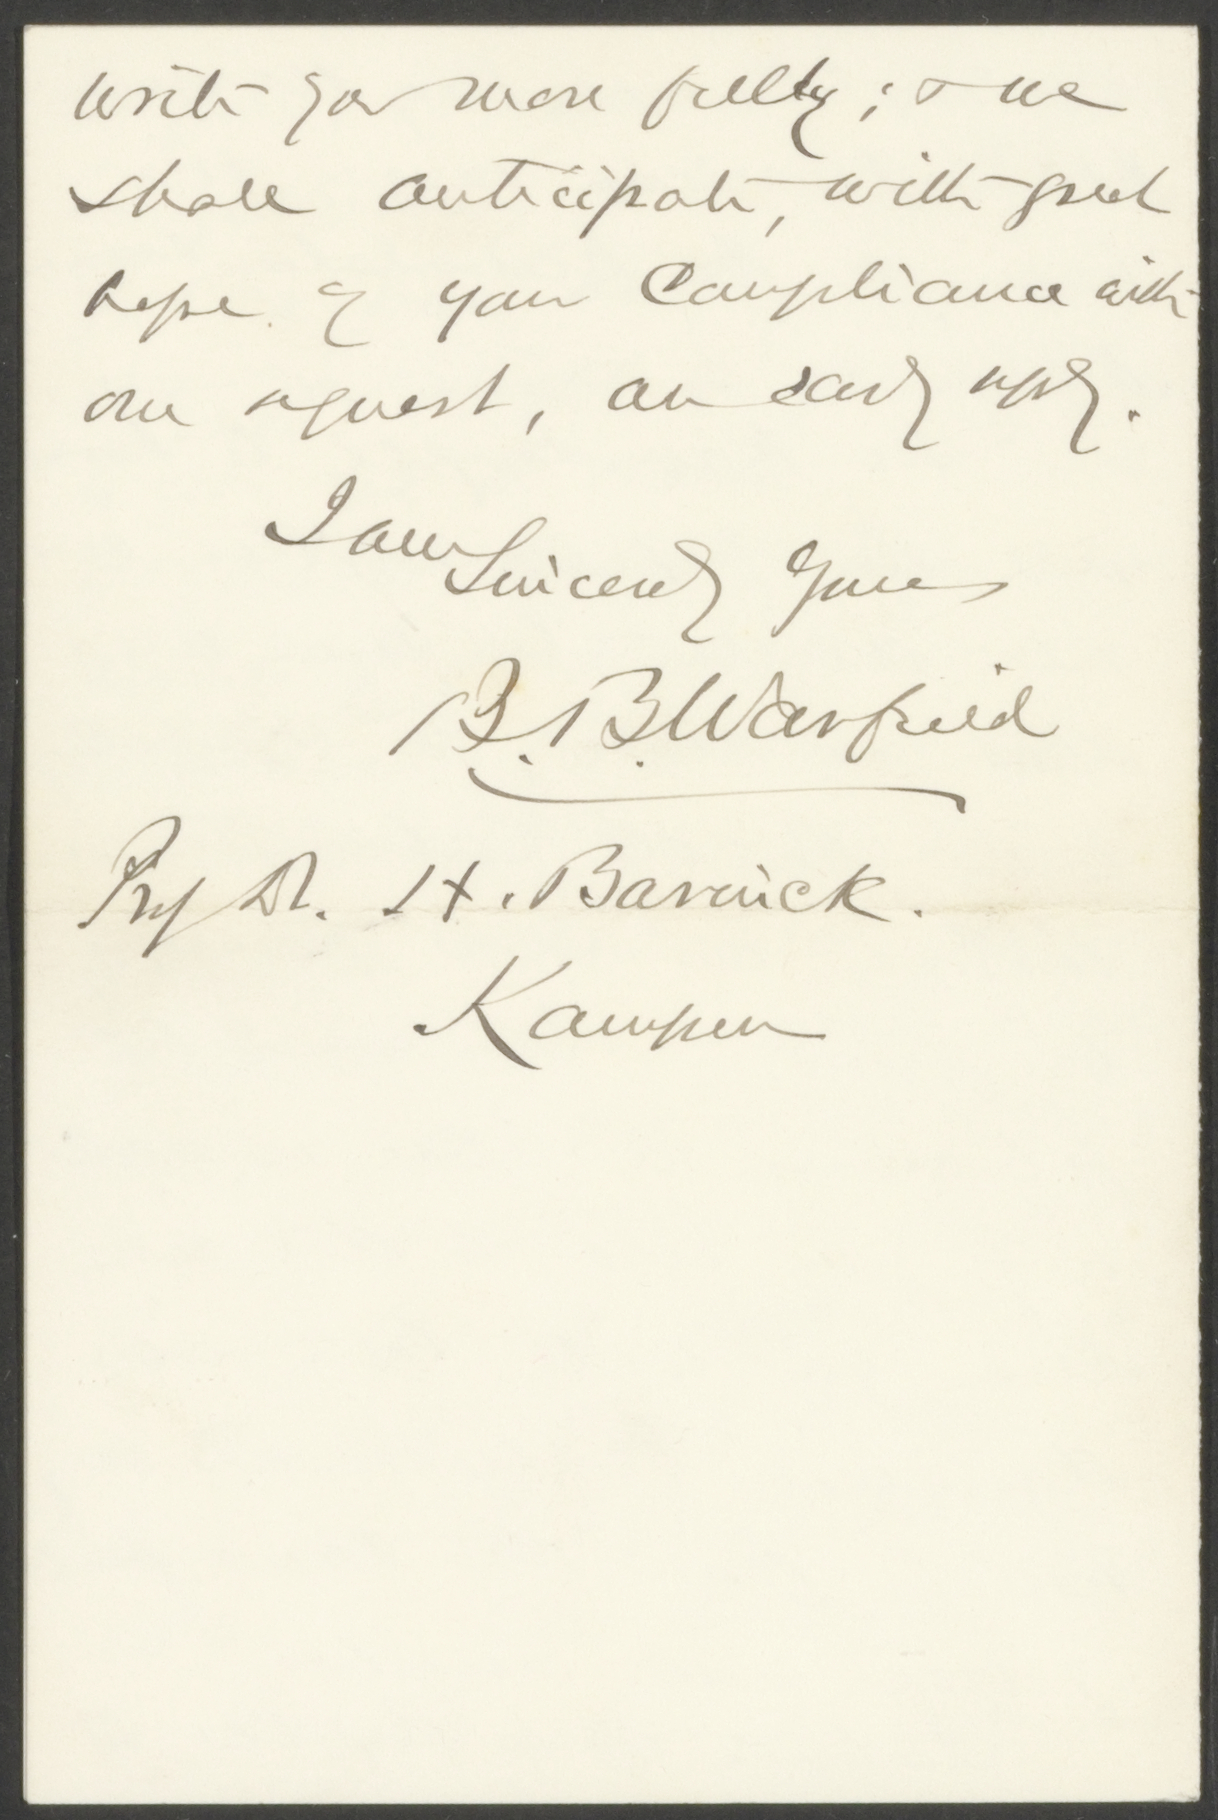 write you more fully; & we
shall anticipate, with great
hope of your compliance with
our request, an early reply.
I am
Sincerely Yours
B. B. Warfield
Prof Dr. H. Bavinck.
Kampen